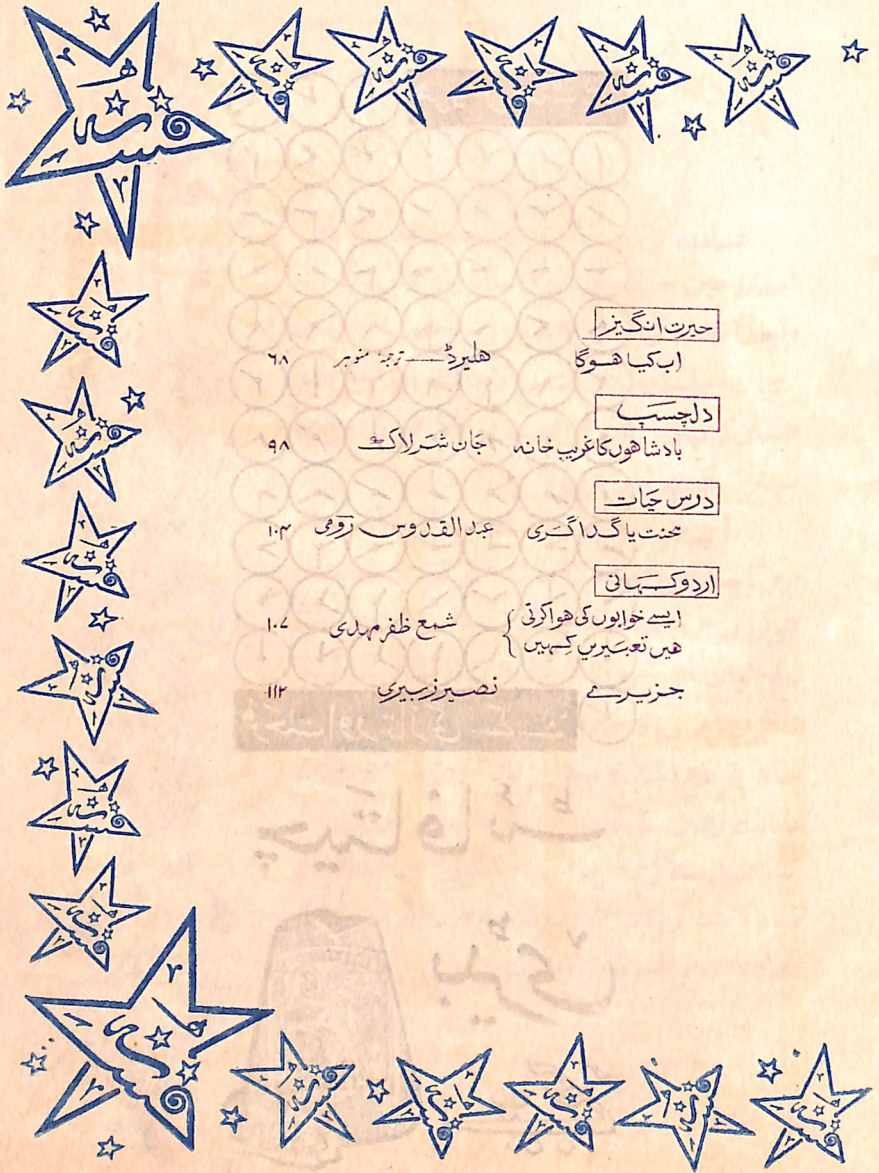 حیرت انگیز
اب کیا ہوگا ہلیرڈ — ترجمہ منوہر ۶۸
دلچسپ
بادشاہوں کا غریب خانہ جان شرلاک ۹۸
درس حیات
محنت یا گداگری عبدالقدوس رومی ۱۰۴
اردو کہانی
ایسے خوابوں کی ہوا کرتی
ہیں تعبیریں کہیں } شمع ظفر مہدی ۱۰۷
جزیرے نصیر زبیری ۱۱۲